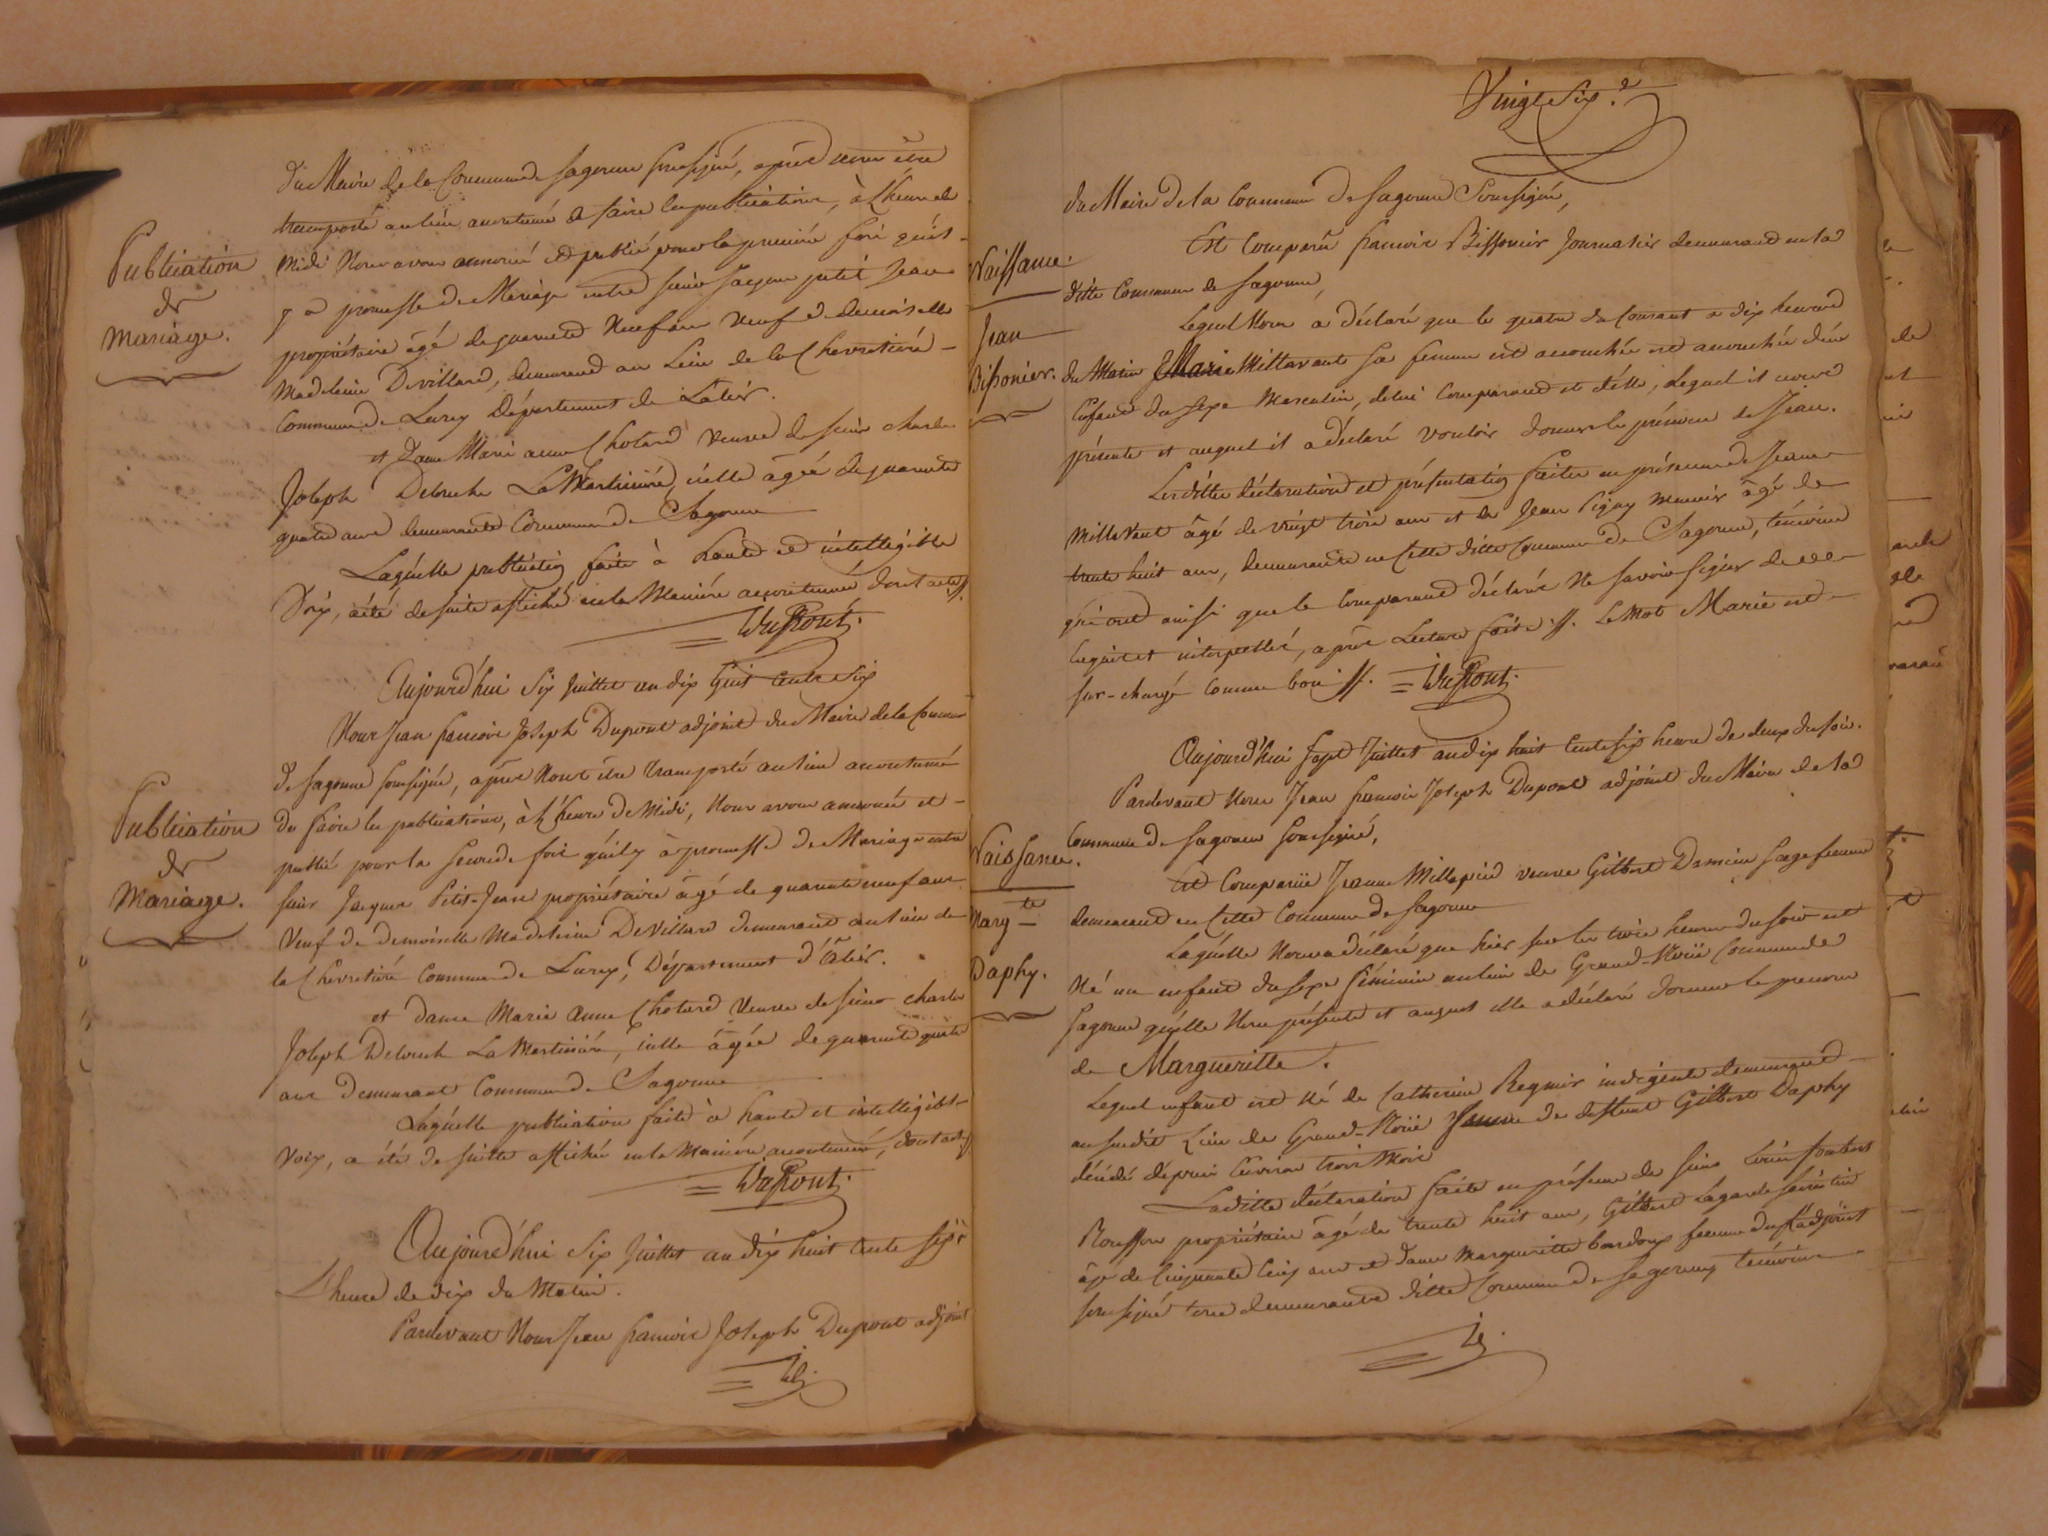 du Maire de la Commune de Sagonne soussigné, après nous être
transporté au lieu accoutumé de faire les publications, à L'heure de
Midi Nous avons annoncé et publié pour la première fois qu'il
y a promesse de Mariage entre sieur Jacques petit Jean
propriétaire âgé de quarente Neuf ans veuf de demoiselle
Madeleine Devillard, demeurant au Lieu de la Chevretiere
Commune de Lurcy Département de Lalier.
et Dame Marie anne Chotard veuve de sieur charles
Joseph Delouche LaMartiniere, icelle âgée de quarente
quatre ans demeurante Commune de Sagonne
Laquelle publication faite à haute et intelligible
Voix, a été de suite affiché en la Maniere accoutumée dont acte ff.
Dupont.
Publication
de
Mariage.
Aujourd'hui Six Juillet an dix huit cents six
Nous Jean francois Joseph Dupont adjoint du Maire de la Commune
de Sagonne soussigné, après Nous être transporté au lieu accoutumé
de faire les publications, à L'heure de Midi, Nous avons annoncé et
publié pour la seconde fois qu'il y à promesse de Mariage entre
sieur Jacques Petit-Jean propriétaire âgé de quarante neuf ans
Veuf de demoiselle Madeleine DeVillard demeurant au lieu de
la Chevretiere Commune de Lurcy, Département d'alier.
et dame Marie anne Chotard Veuve de sieur charles
Joseph Delouche LaMartiniere, icelle âgée de quarante quatre
ans demeurant Commune de Sagonne
Laquelle publication faite à haute et intelligible
Voix, a été de suitte affichée en la Maniere accoutumée, dont acte ff
Dupont.
Publication
de
Mariage.
Aujourd'hui Six Juillet an dix huit cents six
L'heure de dix du Matin.
Pardevant Nous Jean francois Joseph Dupont adjoint
Vingt Six.e
du Maire de la Commune de Sagonne Soussigné,
Est Comparu francois Bissonier Journalier demeurant en la
ditte Commune de Sagonne,
Lequel Nous a déclaré que le quatre du Courant a dix heures
du Matin Marie Millavant sa femme est accouchée est accouchée d'un
Enfant du sexe Masculin, de lui Comparant et d'elle, Lequel il nous
présente et auquel il a déclaré vouloir donner le prénom de Jean.
Lesdittes déclaration et présentation faites en présence de Jean
Millavant âgé de vingt trois ans et de Jean Pigny Meunier âgé de
trente huit ans, demeurants en Cette ditte Commune de Sagonne, témoins
qui ont ainsi que le Comparant déclaré Ne savoir signer de ce
enquis et interpellés, après Lecture faite ff. Le Mot Marie est
sur-chargé Comme bon ff. Dupont.
Naissance.
Jean
Bissonier.
Aujourd'hui Sept Juillet an dix huit cents six heure de deux du soir.
Pardevant Nous Jean francois Joseph Dupont adjoint du Maire de la
Commune de Sagonne soussigné,
Est Comparüe Jeanne Millepied veuve Gilbert Damien sage femme
demeurant en Cette Commune de Sagonne
Laquelle Nous a déclaré que hier sur les trois heures du soir est
Né un enfant du sexe féminin au lieu de Grand-Noüe Commune de
Sagonne qu'elle Nous présente et auquel elle a déclaré donner le prenom
de Margueritte.
Lequel enfant est Né de Catherine Regnier indigente demeurant
au susdit Lieu de Grand-Noüe veuve de deffunt Gilbert Daphy
décédé depuis Environ trois Mois
Laditte déclaration faite en présence de sieur
Rousson propriétaire âgé de trente huit ans, Gilbert Lagarde
âgé de Cinquante Cinq ans et dame Margueritte bardoux femme du adjoint
soussigné tous demeurants ditte Commune de Sagonne, témoins
Naissance.
Marg.te
Daphy.